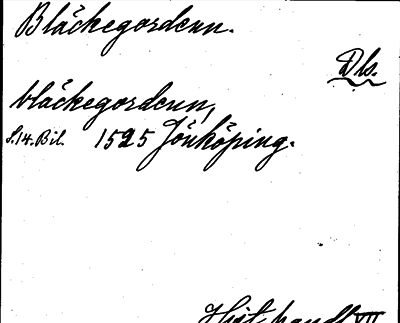 Bläckegordenn.
Dls.
bläckegordenn,
S.14. Bil. 1525 Jönköping.
Hist. handl. VII